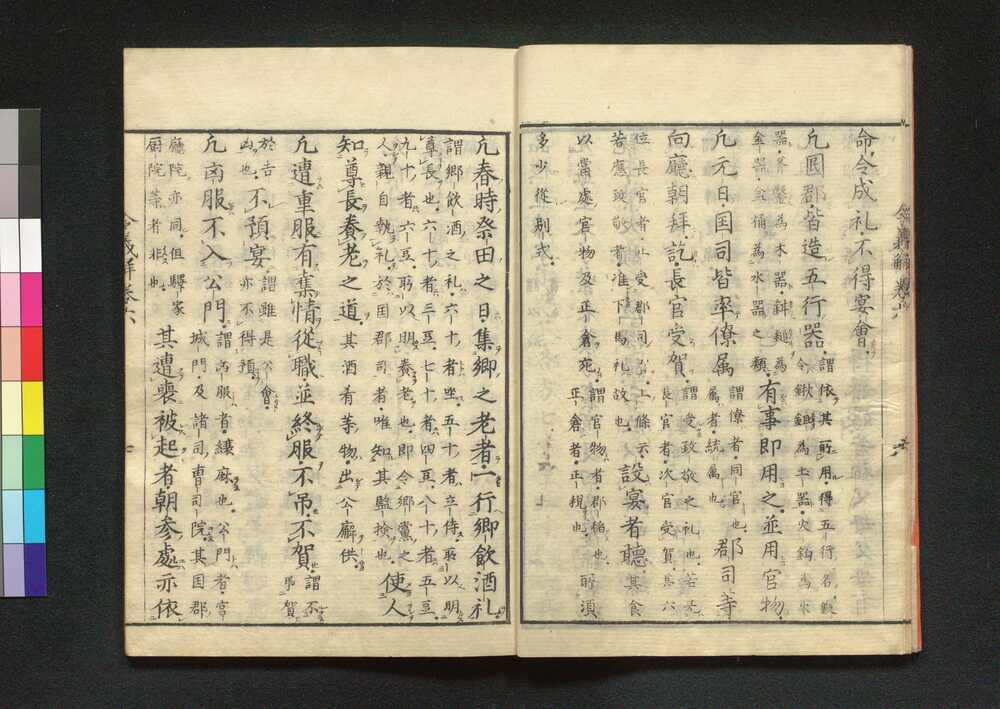 命令成礼不得宴會
凢國郡皆造五行器謂依其所用得五行名假令鍬鋤為土器火鈎為火
器斧鑿為木器為金器金桶為水器之類有事即用之並用官物
凢元日国司皆率僚属謂僚者同官也属者統属也郡司等
向廳朝拜訖長官受賀謂受致敬之礼也若無長官者次官受賀其六
位長官者止受郡司上條示
若應致敬者准下馬礼故也設宴者聽其食
以當處官物及正倉宛謂官物者郡稲也正倉者正税也所湏
多少從別式
凢春時祭田之日集郷之老者一行郷飲酒礼
謂郷飲酒之礼六十者坐五十者立侍所以明
尊長也六十者三豆七十者四豆八十者五豆
九十者六豆所以明養老也即令郷黨之
人親自執礼於国郡司者唯知其監撿也使人
知尊長養老之道其酒肴等物出公廨供
凢遭重服有奪情從職並終服不吊不賀謂不賀
於吉凶也不預宴謂雖是公會亦不得預
凢凶服不入公門謂凶服者縗麻也公門者宮城門及諸司曹司院其国郡
廳院亦同但驛家厨院等者非也其遭喪被起者朝参處亦依